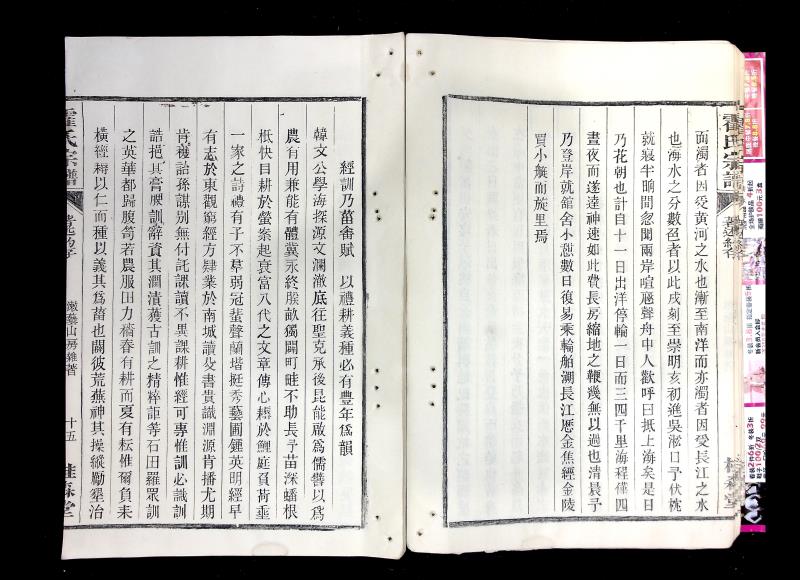 面濁者因受黃河之水也漸至南洋而亦濁者因受長江之水
也海水之分數色者以此戌刻至崇明亥初進吳淞口予伏枕
就寢半晌間忽聞兩岸喧聲舟中人歡呼曰抵上海矣是日
乃花朝也計自十一日出洋停輪一日而三四千里海程僅四
晝夜而遂達神速如此費長房縮地之鞭幾無以過也清晨予
乃登岸就館舍小憩數日復易乘輪船溯長江歷金焦經金陵
買小艇而旋里焉
霍氏宗譜
經訓乃菑畬賦 以禮耕義種必有豐年爲韻
韓文公學海探源文瀾澈底往聖克承後昆能啟爲儒者以爲
農有用兼能有體冀永終朕畝獨闢町畦不助長予苗深蟠根
柢快目耕於螢案起衰當八代之文章傳心耨於鯉庭負荷垂
一家之詩禮有子不羣弱冠蜚聲蘭堦挺秀藝圃鍾英明經早
有志於東觀窮經方肄業於南城讀父書貴識淵源肯播尤期
肯穫詒孫謀別無付託課讀不異課耕惟經可專惟訓必識訓
誥挹其膏腴訓辭資其潤漬獲古訓之精粹詎等石田羅眾訓
之英華都歸腹笥若農服田力穡春有耕而夏有耘惟爾負耒
橫經耨以仁而種以義其爲菑也闢彼荒蕪神其操縱勵墾治
霍氏宗譜
嫩藜山房雜著
十五
桂森堂